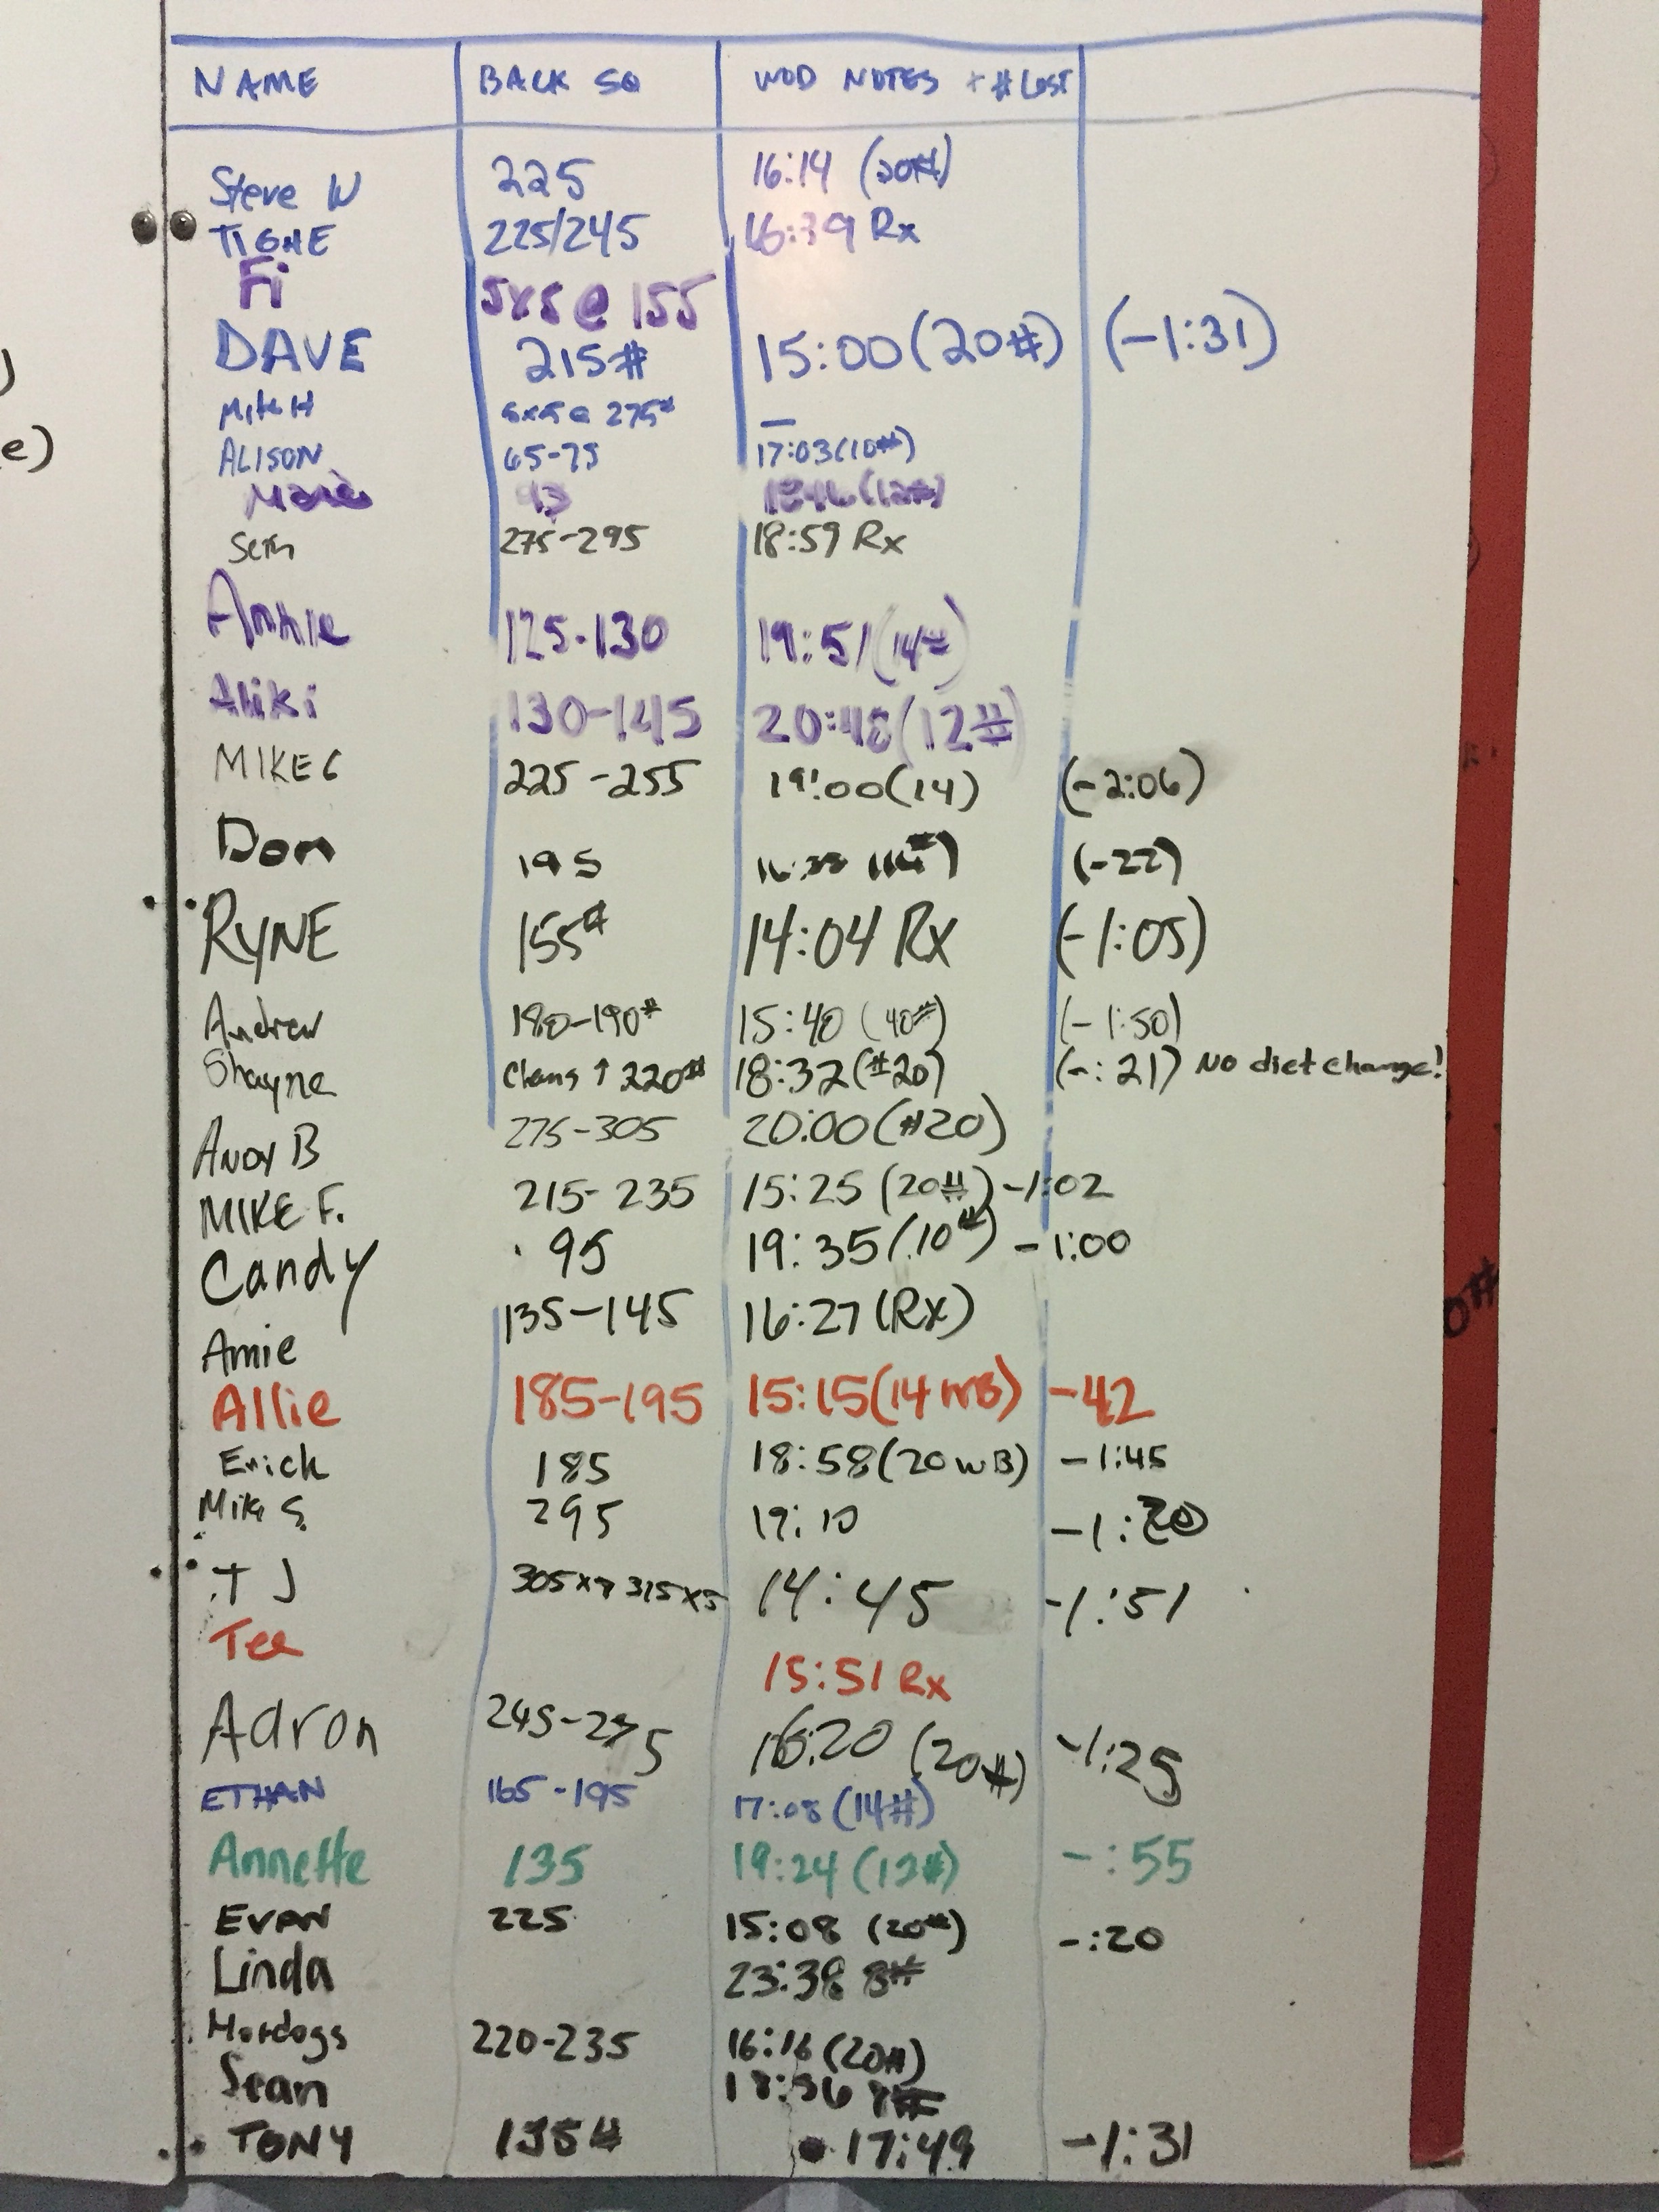 NAME BACK SQ WOD NOTES + # LOST
Steve W 225 16:14 (20#)
TIGHE 225/245 16:39 Rx
Fi 5x5 @ 155
DAVE 215# 15:00 (20#) (-1:31)
Mitch 5x5 @ 275# —
ALISON 65-75 17:03 (10#)
(12#)
Seth 275-295 18:59 Rx
Annie 125-130 19:51 (14#)
Aliki 130-145 20:48 (12#)
MIKE C 225-255 19:00 (14) (-2:06)
Don 195 (-22)
RYNE 155# 14:04 Rx (-1:05)
Andrew 180-190# 15:40 (40#) (-1:50)
Shayne Cleans ↑ 220# 18:32 (#20) (-:21) No diet change!
ANDY B 275-305 20:00 (#20)
MIKE F. 215-235 15:25 (20#) -1:02
Candy 95 19:35 (10#) -1:00
Amie 135-145 16:27 (Rx)
Allie 185-195 15:15 (14 WB) -42
Erick 185 18:58 (20 WB) -1:45
Mike S. 295 19:10 -1:20
TJ 315x5 14:45 -1:51
Tee 15:51 Rx
Adron 16:20 (20#) -1:25
ETHAN 165-195 17:08 (14#)
Annette 135 19:24 (12#) -:55
EVAN 225 15:08 (20#) -:20
Linda 23:38 8#
Hotdogs 220-235 16:16 (20#)
Sean 18:56
TONY 135# 17:49 -1:31
e)
0#